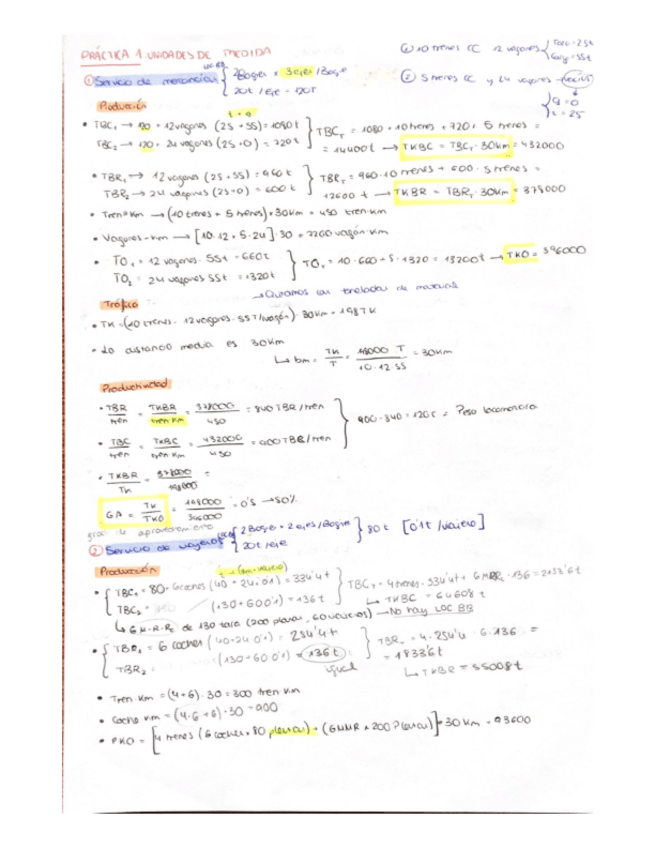 PRÁCTICA 1 UNIDADES DE MEDIDA
① 10 trenes CC 12 vagones { Tara = 25t Carga = 55t
① Servicio de mercancías { 2 Bogies x 3 ejes / Bogie
20t / eje = 120T
② 5 trenes CC y 24 vagones vacíos { Q = 0 T = 25
Producción
t + q
• TBC₁ → 120 + 12 vagones (25 + 55) = 1080t
TBC₂ → 120 + 24 vagones (25+0) = 720t
TBC_T = 1080 · 10 trenes + 720 · 5 trenes =
= 14400t → TKBC = TBC_T · 30km = 432000
• TBR₁ → 12 vagones (25+55) = 960t
TBR₂ → 24 vagones (25+0) = 600t
TBR_T = 960·10 trenes + 600 · 5 trenes =
12600 t → TKBR = TBR_T · 30km = 378000
• Tren·Km → (10 trenes + 5 trenes)·30km = 450 tren·km
• Vagones-km → [10·12 + 5·24]·30 = 7200 vagón·km
• TO₁ = 12 vagones · 55t = 660t
TO₂ = 24 vagones 55t = 1320t
TO_T = 10·660 + 5·1320 = 13200t → TKO = 396000
→ Quitamos las toneladas de material
Tráfico
• TK = (10 trenes · 12 vagones · 55T/vagón) · 30km = 198TK
• La distancia media es 30Km
↳ bm = TK/T = 198000 T / 10·12·55 = 30km
Productividad
• TBR/tren = TKBR/tren·km = 378000/450 = 840 TBR/tren
• TBC/tren = TKBC/tren·km = 432000/450 = 900 TBC/tren
900-840 = 120t = Peso locomotora
• TKBR/TK = 378000/198000 =
GA = TK/TKO = 198000/396000 = 0'5 → 50%
grado de aprovechamiento
② Servicio de viajeros { 2 Bogies · 2 ejes/Bogie
20t/eje
} 80t [0'1t/viajero]
Producción
• TBC₁ = 80 + 6 coches (40 + 24·0'1) = 334'4t
TBC₂ = (130 + 60·0'1) = 136t
TBC_T = 4 trenes · 334'4t + 6 · 136 = 2153'6t
↳ TKBC = 64608t
↳ 6 M-R-R_c de 130 tara (200 plazas, 60 viajeros) → No hay LOC BB
• TBR₁ = 6 coches (40+24·0'1) = 254'4t
TBR₂ = (130+60·0'1) = 136t
igual
TBR_T = 4·254'4 + 6·136 =
= 1833'6t
↳ TKBR = 55008t
• Tren·Km = (4+6)·30 = 300 tren·km
• Coche km = (4·6+6)·30 = 900
• PKO = [4 trenes (6 coches · 80 plazas) + (6 MMR x 200 Plazas)]·30 km = 93600